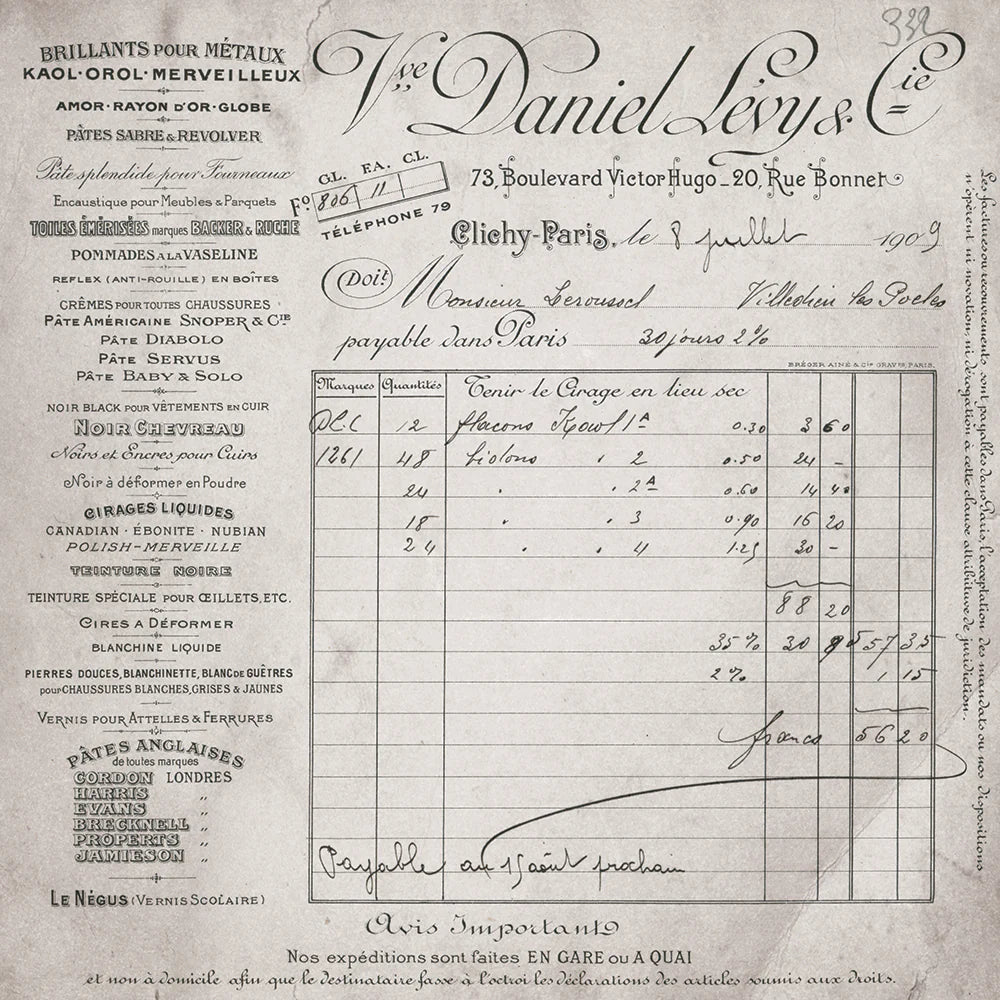 339
Vve Daniel Lévy & Cie
73, Boulevard Victor Hugo _ 20, Rue Bonnet
GL. FA. C.L.
Fo 806 11
TÉLÉPHONE 79
Clichy-Paris, le 8 juillet 1909
Doit Monsieur Leroussel Villedieu les Poeles
payable dans Paris 30 jours 2%
BRÉGER AINÉ & Cie GRAVrs, PARIS.
BRILLANTS POUR MÉTAUX
KAOL·OROL·MERVEILLEUX
AMOR·RAYON D'OR·GLOBE
PÂTES SABRE & REVOLVER
Pâte splendide pour Fourneaux
Encaustique pour Meubles & Parquets
TOILES ÉMÉRISÉES marques BACKER & RUCHE
POMMADES A LA VASELINE
REFLEX (ANTI-ROUILLE) EN BOÎTES
CRÊMES POUR TOUTES CHAUSSURES
PÂTE AMÉRICAINE SNOPER & CIE
PÂTE DIABOLO
PÂTE SERVUS
PÂTE BABY & SOLO
NOIR BLACK POUR VÊTEMENTS EN CUIR
NOIR CHEVREAU
Noirs et Encres pour Cuirs
Noir à déformer en Poudre
CIRAGES LIQUIDES
CANADIAN · ÉBONITE · NUBIAN
POLISH-MERVEILLE
TEINTURE NOIRE
TEINTURE SPÉCIALE POUR ŒILLETS, ETC.
CIRES A DÉFORMER
BLANCHINE LIQUIDE
PIERRES DOUCES, BLANCHINETTE, BLANC DE GUÊTRES
POUR CHAUSSURES BLANCHES, GRISES & JAUNES
VERNIS POUR ATTELLES & FERRURES
PÂTES ANGLAISES
de toutes marques
CORDON LONDRES
HARRIS „
EVANS „
BRECKNELL „
PROPERTS „
JAMIESON „
LE NÉGUS (VERNIS SCOLAIRE)
Marques Quantités Tenir le Cirage en lieu sec
12 flacons Kaol 1A 0.30 3 60
1261 48 bidons " 2 0.50 24 –
24 " " 2A 0.60 14 40
18 " " 3 0.90 16 20
24 " " 4 1.25 30 –
88 20
35% 30 85 57 35
2% 1 15
francs 56 20
Payable au 15 août prochain
Les factures ou recouvrements sont payables dans Paris, l'acceptation des mandats ou nos dispositions
n'opèrent ni novation, ni dérogation à cette clause attributive de juridiction.
Avis Important
Nos expéditions sont faites EN GARE ou A QUAI
et non à domicile afin que le destinataire fasse à l'octroi les déclarations des articles soumis aux droits.